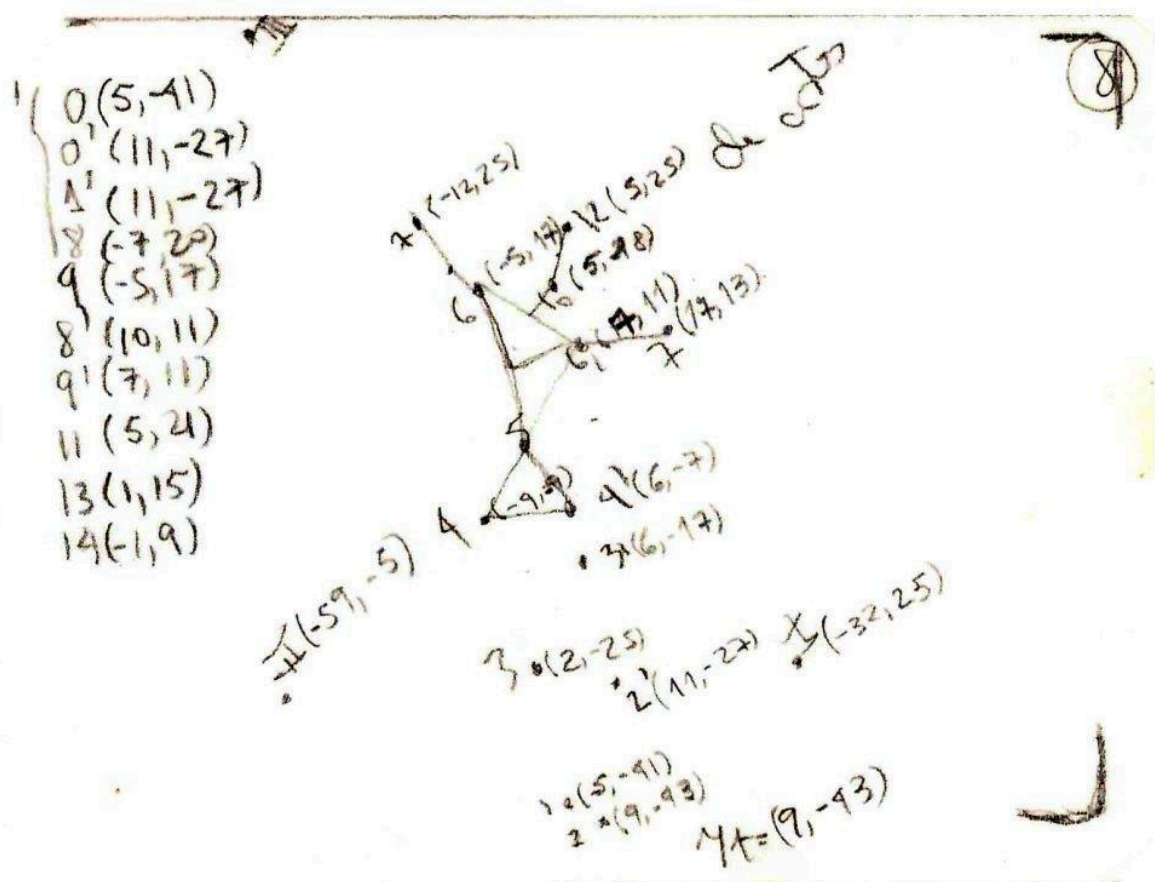 8
0 (5,-41)
0' (11,-27)
1' (11,-27)
8 (-7,20)
9 (-5,17)
8' (10,11)
9' (7,11)
11 (5,21)
13 (1,15)
14 (-1,9)
7 (-12,25)
12 (5,25)
6 (-5,17)
10 (5,18)
6' (7,11)
7 (17,13)
5
4 (-9,-9)
4' (6,-7)
3' (6,-17)
II (-59,-5)
3 (2,-25)
2' (11,-27)
X (-32,25)
1 (5,-41)
2 (9,-43)
(9,-43)